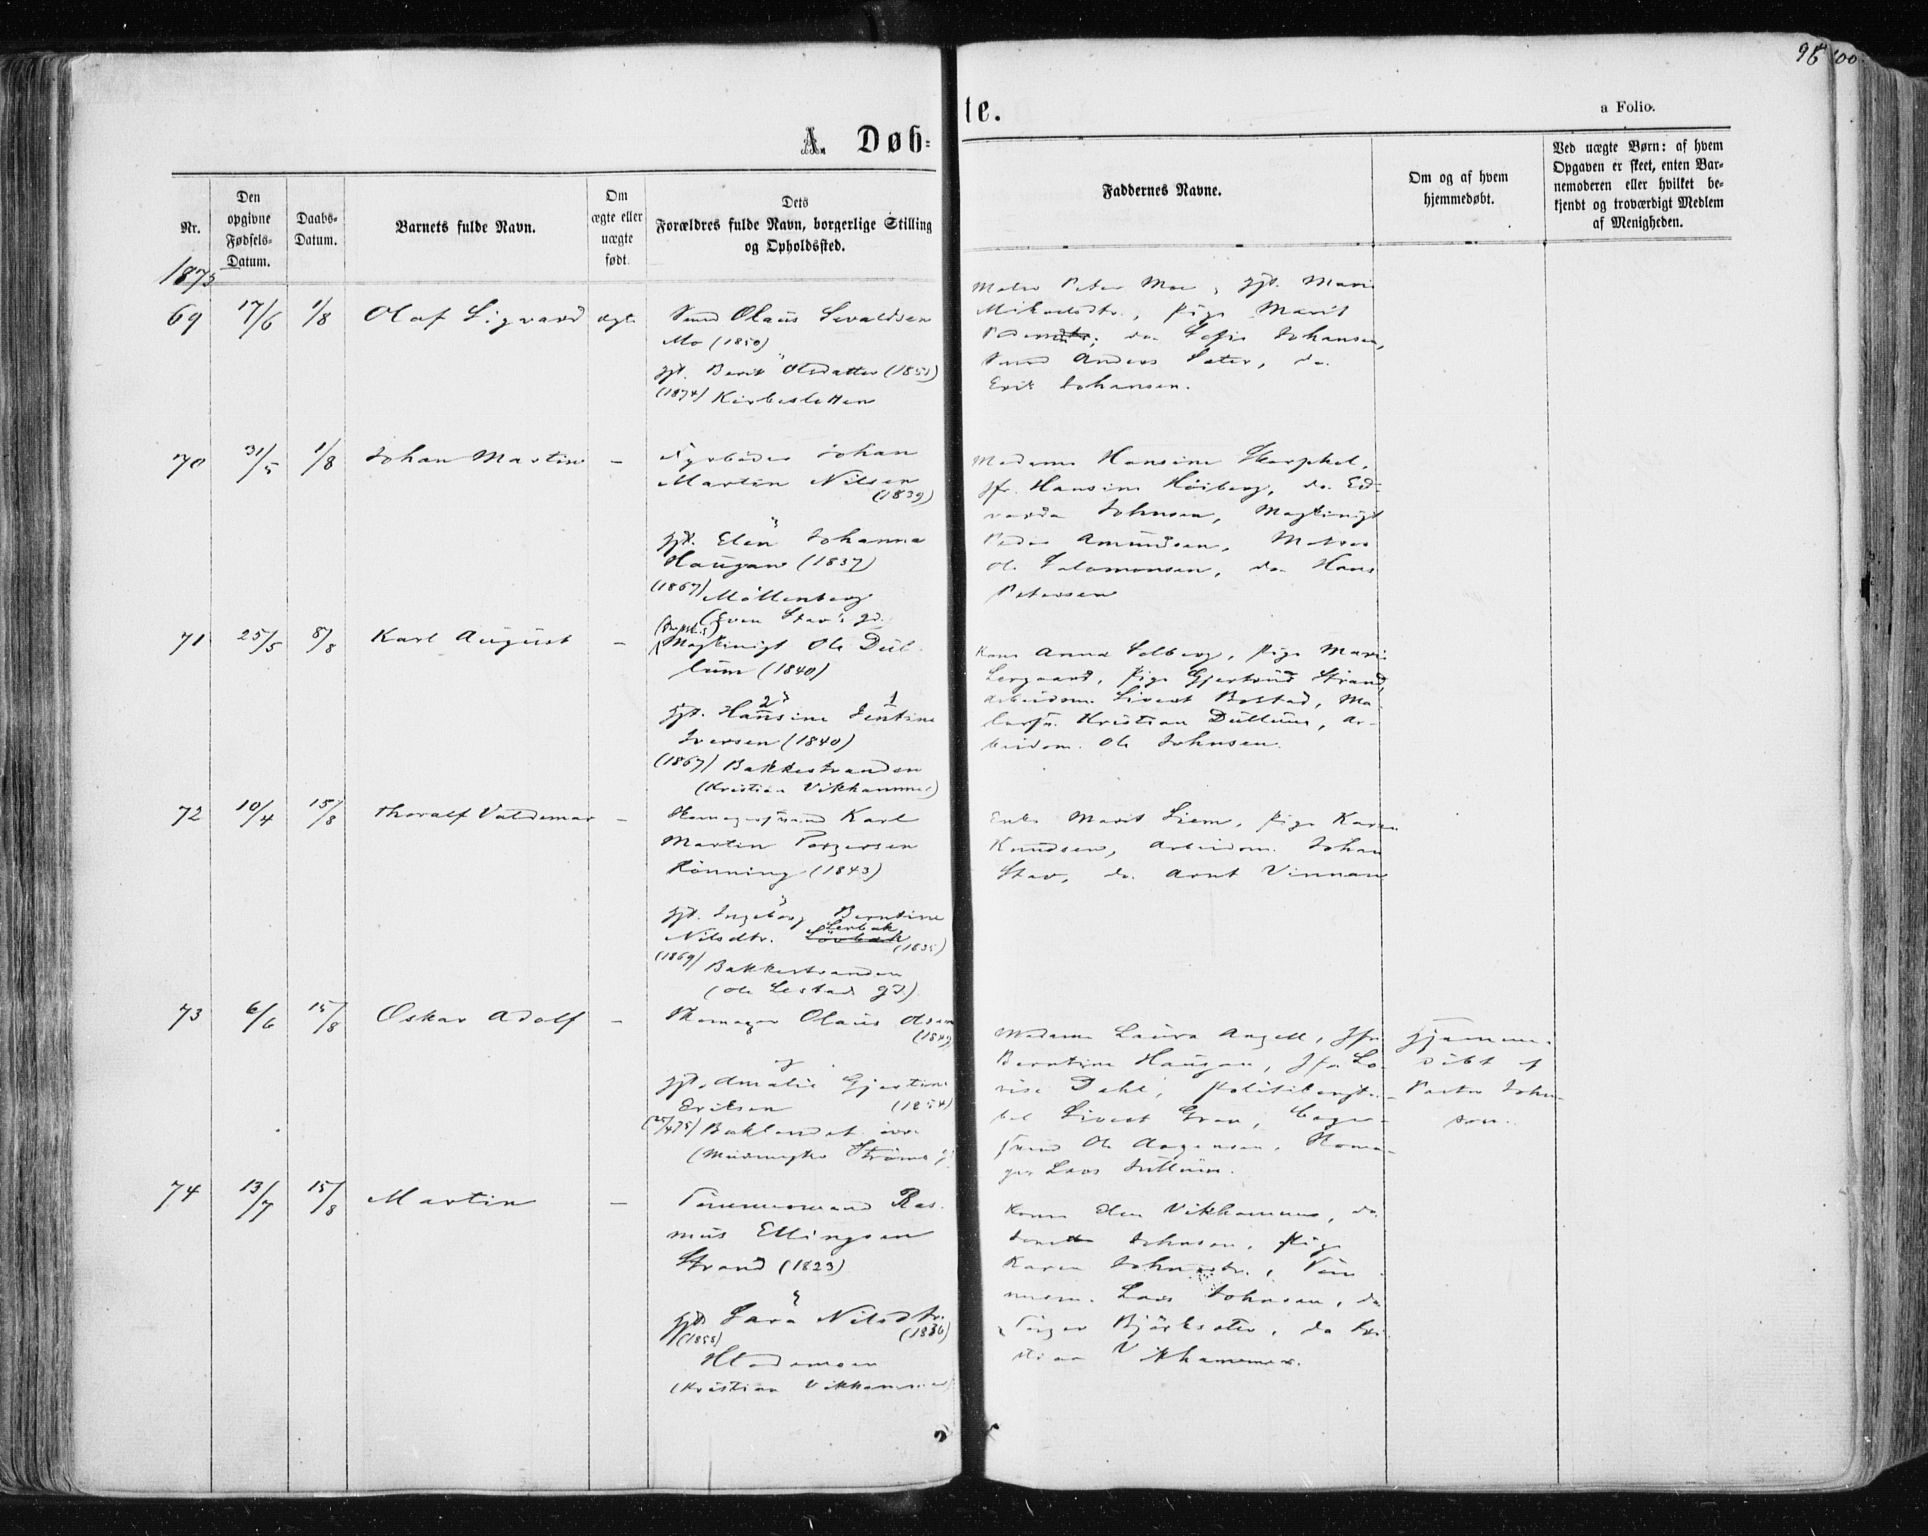 96 100
A. Døb-
te.
a Folio.
Nr.
Den opgivne Fødsels-Datum.
Daabs-Datum.
Barnets fulde Navn.
Om ægte eller uægte født.
Dets Forældres fulde Navn, borgerlige Stilling og Opholdssted.
Faddernes Navne.
Om og af hvem hjemmedøbt.
Ved uægte Børn: af hvem Opgaven er skeet, enten Barnemoderen eller hvilket bekjendt og troværdigt Medlem af Menigheden.
1875
69 17/6 1/8 Olaf Sigvard ægte
Smed Olaus Sevaldsen
Mo (1850)
gjt. Berit Olsdatter (1851)
(1874) Kirkesletten
Peter Moe, gjt. Marie
Mikaelsdtr., Pige Marit
do. Sofie Johansen,
Smed Anders Sæter, do.
Erik Johansen.
70 31/5 1/8 Johan Martin –
Johan
Martin Nilsen
(1839)
gjt. Elen Johanna
Haugan (1837)
(1867) Møllenberg
(Even Stav's gd.
Madame Hansine
Jfr. Hansine Høiberg, do. Ed-
varda Johnsen,
Peder Amundsen, Matros
Ole Salomonsen, do. Hans
Petersen
71 25/5 8/8 Karl August –
Ole Dul-
lum (1840)
gjt. Hansine Jentine
Iversen (1840)
(1867) Bakkestranden
(Kristian Vikhammer)
Kone Anna Solberg, Pige Marie
Lergaard, Pige Gjertrud Strand,
Arbeidsm. Sivert Bostad, Ma-
lersv. Kristian Dullum, Ar-
beidsm. Ole Johnsen.
72 10/4 15/8 Thoralf Valdemar –
Skomagersvend Karl
Martin Torgersen
Rønning (1843)
gjt. Ingeborg Berntine
Nilsdtr. Lerbak
(1835)
(1869) Bakkestranden
(Ole Lestad gd.)
Enke Marit Siem, Pige Karen
Knudsen, Arbeidsm. Johan
Stav, do. Arnt Vinnan
73 6/6 15/8 Oskar Adolf –
Skomager Olaus Olsen
(1849)
og
gjt. Amalie Gjertine
Eriksen (1854)
Baklandet
Madame Laura Angell, Jfr.
Berntine Haugan, Jfr. Lo-
vise Dahl, Politibetjt.
Sivert Gran, Bager-
svend Ole Aagensen, Skoma-
ger Lars Tullum.
Hjemme-
døbt af
Pastor John-
son.
74 13/7 15/8 Martin –
Tømmermand Ras-
mus Ellingsen
Strand (1823)
gjt. Sara Nilsdtr.
(1858) (1836)
Hlademoen
(Kristian Vikhammer
Kone Vikhammer, do.
Johnsen, Pige
Karen Johnsdtr., Tøm-
merm. Lars Johnsen, do.
Torger Bjørksæter, do. Kri-
stian Vikhammer.